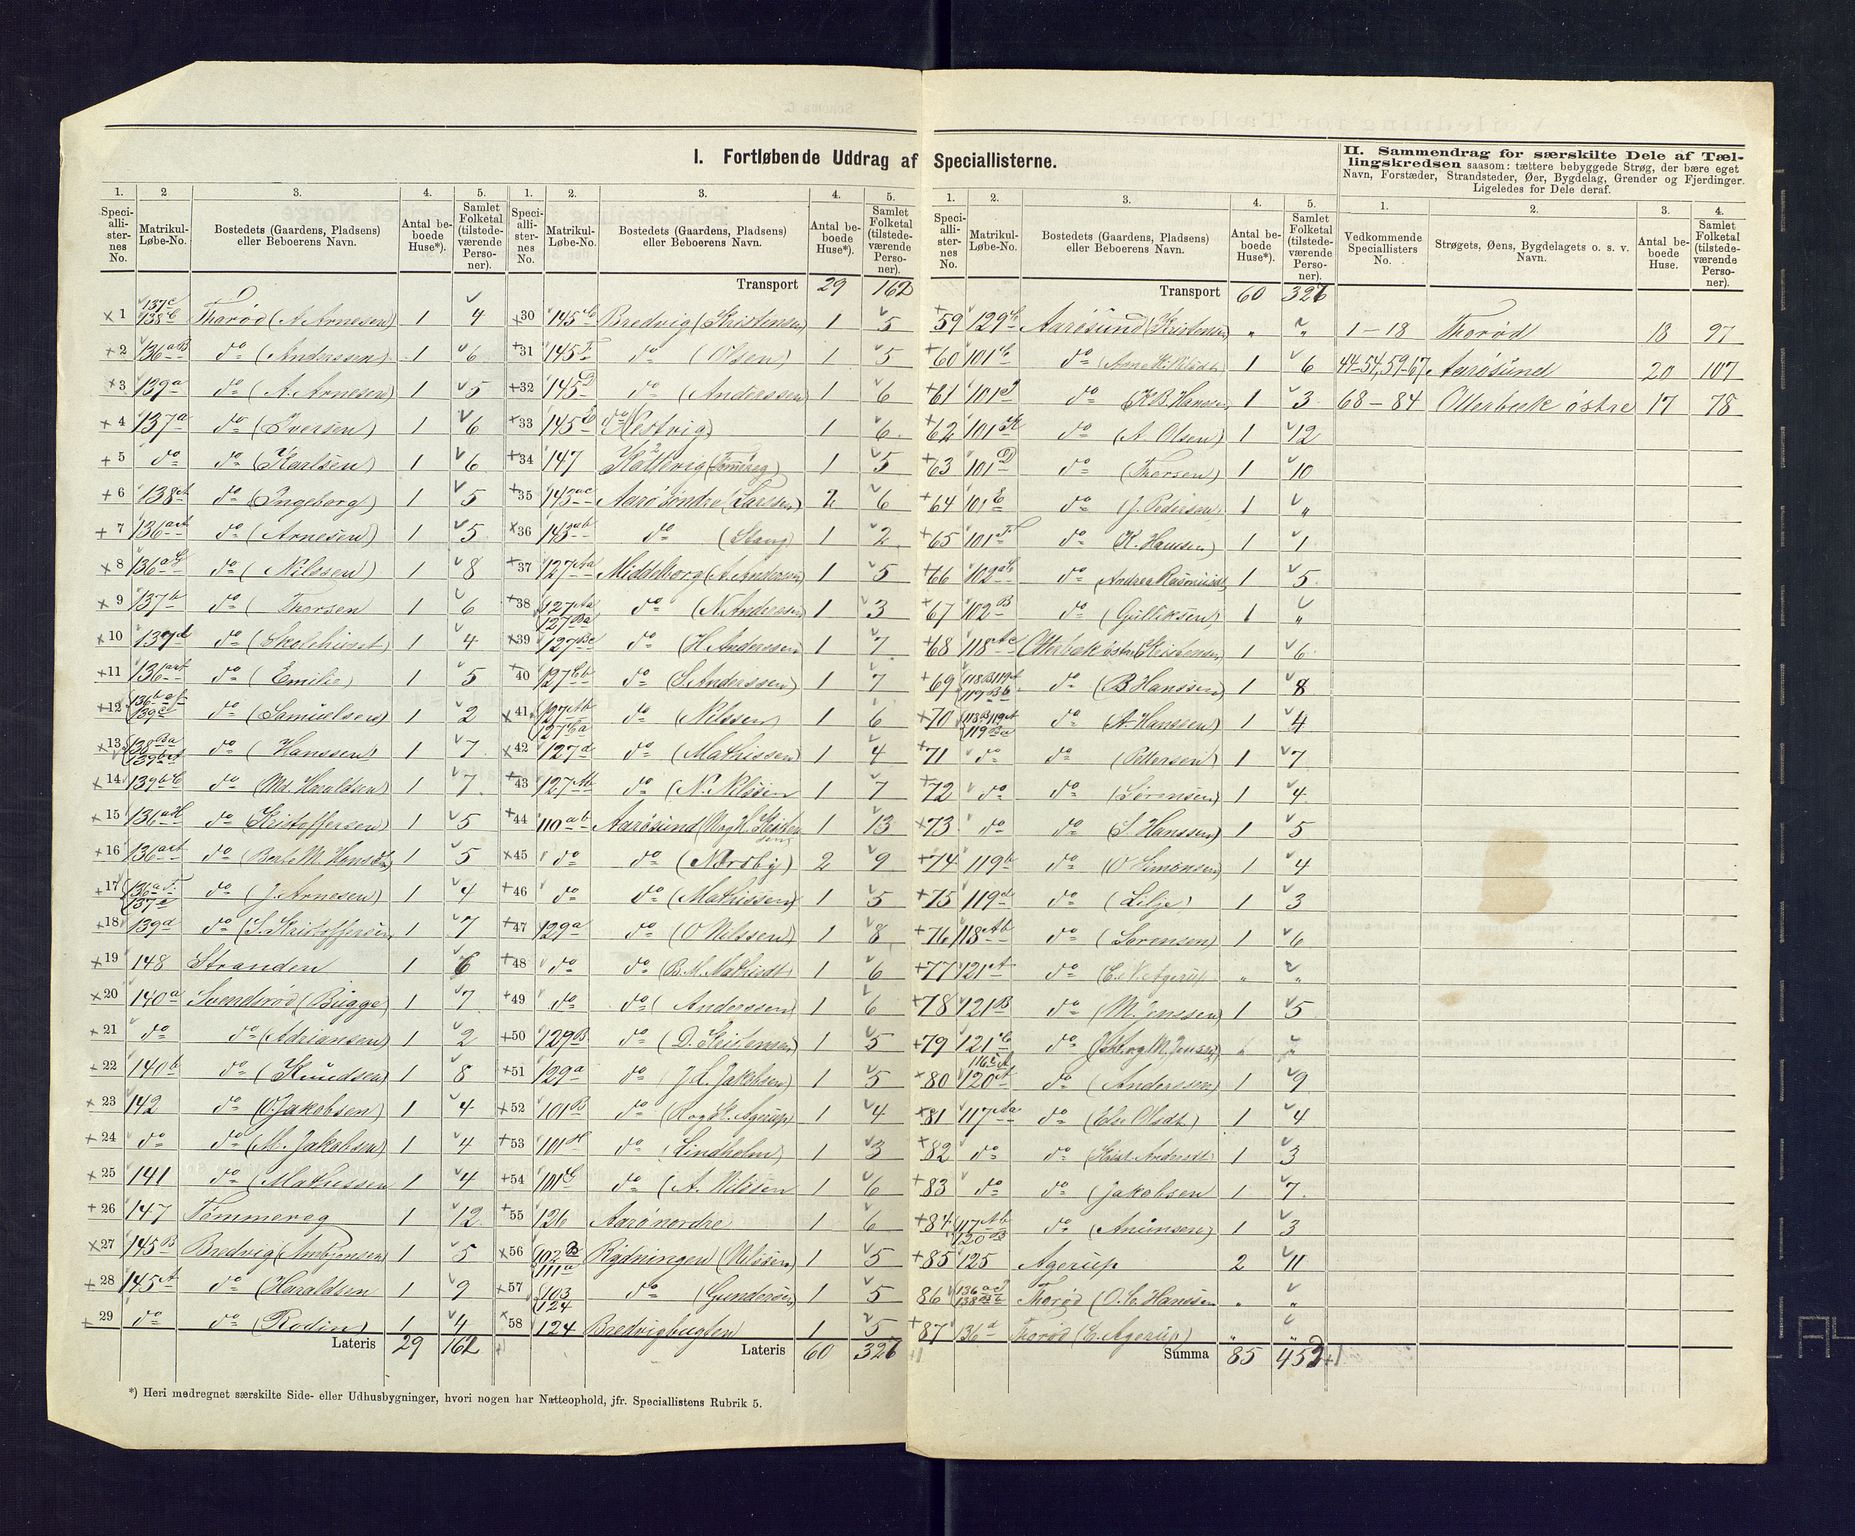 I. Fortløbende Uddrag af Speciallisterne.
1. 2 3. 4. 5.
Speciallisternes No. Matrikul-Løbe-No. Bostedets (Gaardens, Pladsens) eller Beboerens Navn. Antal beboede Huse*). Samlet Folketal (tilstedeværende Personer).
1 137c 138C Thorød (A. Arnesen) 1 4
2 136aB do (Anderssen) 1 6
3 139a do (A. Arnesen) 1 5
4 137a do (Iversen) 1 6
5 do do (Karlsen) 1 6
6 138A do (Ingeborg) 1 5
7 136 do (Arnesen) 1 5
8 136aG do (Nilssen) 1 8
9 137b do (Thorsen 1 6
10 137d do (Skolehuset) 1 4
11 136 do (Emilie) 1 5
12 do (Samuelsen) 1 2
13 138Ba 139bA do (Hanssen) 1 7
14 139bC do (Md. Haraldsen) 1 7
15 136aH do (Kristoffersen) 1 5
16 136 do (Berte M. Hansdt) 1 5
17 136aF 137e do (J. Arnesen) 1 4
18 139d do (S. Kristoffersen) 1 7
19 148 Stranden 1 6
20 140a Svenderød (Bugge) 1 7
21 do do (Adriansen) 1 2
22 140b do (Knudsen) 1 8
23 142 do (O. Jakobsen) 1 4
24 do do (M. Jakobsen) 1 4
25 141 do (Mathissen 1 4
26 147 Tømmereg 1 12
27 145B Bredvig (Ambjørnsen) 1 5
28 145A do (Haraldsen 1 9
29 do do (Rodin) 1 4
Lateris 29 162
1. 2. 3. 4. 5.
Speciallisternes No. Matrikul-Løbe-No. Bostedets (Gaardens, Pladsens) eller Beboerens Navn. Antal beboede Huse*). Samlet Folketal (tilstedeværende Personer).
Transport 29 162
30 145C Bredvig (Kristensen) 1 5
31 145F do (Olsen) 1 5
32 145D do (Anderssen) 1 6
33 145 do (Vestvig) 1 6
34 147 Kattevig (Tømereg) 1 5
35 143ac Aarø søndre (Larssen) 2 6
36 143ab do (Stang) 1 2
37 127Aa Middelborg (A. Andersen) 1 5
38 127Aa 127Ba do (N. Anderssen) 1 3
39 127Bc do (H. Anderssen) 1 7
40 127Cb do (S. Anderssen) 1 7
41 127Ab 127Ca do (Nilssen) 1 6
42 127d do (Mathissen) 1 4
43 127Ab do (N. Nilssen 1 7
44 110ab Aarøsund (N og K. Kristensen) 1 13
45 do do (Nordby) 2 9
46 do do (Mathissen) 1 5
47 129a do (O Nilssen) 1 8
48 do do (B. M. Mathisdt) 1 6
49 do do (Anderssen) 1 6
50 129B do (D. Kristensen) 1 5
51 129a do (J. A. Jakobsen) 1 5
52 101B do (K. Agerup) 1 4
53 101H do (Lindholm) 1 3
54 101G do (A. Nilssen 1 6
55 126 Aarø nordre 1 6
56 102B 111a Rydningen (Nilssen) 1 5
57 103 124 do (Gundersen) 1 5
58 124 Bredvigbugten 1 5
Lateris 60 326 +1
1. 2. 3. 4. 5.
Speciallisternes No. Matrikul-Løbe-No. Bostedets (Gaardens, Pladsens) eller Beboerens Navn. Antal beboede Huse*). Samlet Folketal (tilstedeværende Personer).
Transport 60 326
59 129C Aarøsund (Kristensen) " "
60 101C do (Anne K. Nilsdt) 1 6
61 101J do (K. B. Hansen) 1 3
62 101K do (A. Olsen) 1 12
63 101D do (Thorsen) 1 10
64 101E do (J. Pedersen) 1 "
65 101F do (K. Hansen) 1 1
66 102aC do (Andrea Rasmusdt) 1 5
67 102B do (Gulliksen) 1 "
68 118Ac Otterbæk østre (Kristensen) 1 6
69 118B 119A 117Bb do (B. Hanssen) 1 8
70 118B 119A 119Ba do (A. Hanssen) 1 4
71 do do (Pettersen) 1 7
72 do do (Sørensen) 1 4
73 do do (S. Hanssen) 1 5
74 119b do (O Simonsen) 1 4
75 119d do (Lilje) 1 3
76 118Ab do (Sørensen) 1 6
77 121A do (E. N. Agerup) " "
78 121B do (M. Jenssen) 1 5
79 121C do (Joh. og M. Jenssen) " "
80 116 120A do (Anderssen) 1 9
81 117Aa do (Else Olsdt) 1 4
82 do do (Krist. Andersdt) 1 3
83 do do (Jakobsen 1 7
84 117Ab 120B do (Anunsen) 1 3
85 125 Agerup 2 11
86 136aJ 138Bb Thorød (O. C. Hanssen " "
87 136d Thorød (E. Agerup) " "
Summa 85 452 +1
II. Sammendrag for særskilte Dele af Tællingskredsen saasom: tættere bebyggede Strøg, der bære eget Navn, Forstæder, Strandsteder, Øer, Bygdelag, Grender og Fjerdinger. Ligeledes for Dele deraf.
1. 2. 3. 4.
Vedkommende Speciallisters No. Strøgets, Øens, Bygdelagets o. s. v. Navn. Antal beboede Huse. Samlet Folketal (tilstedeværende Personer).
1-18 Thorød 18 97
44-54, 59-67 Aarøsund 20 107
68-84 Otterbæk østre 17 78
*) Heri medregnet særskilte Side- eller Udhusbygninger, hvori nogen har Natteophold, jfr. Speciallistens Rubrik 5.